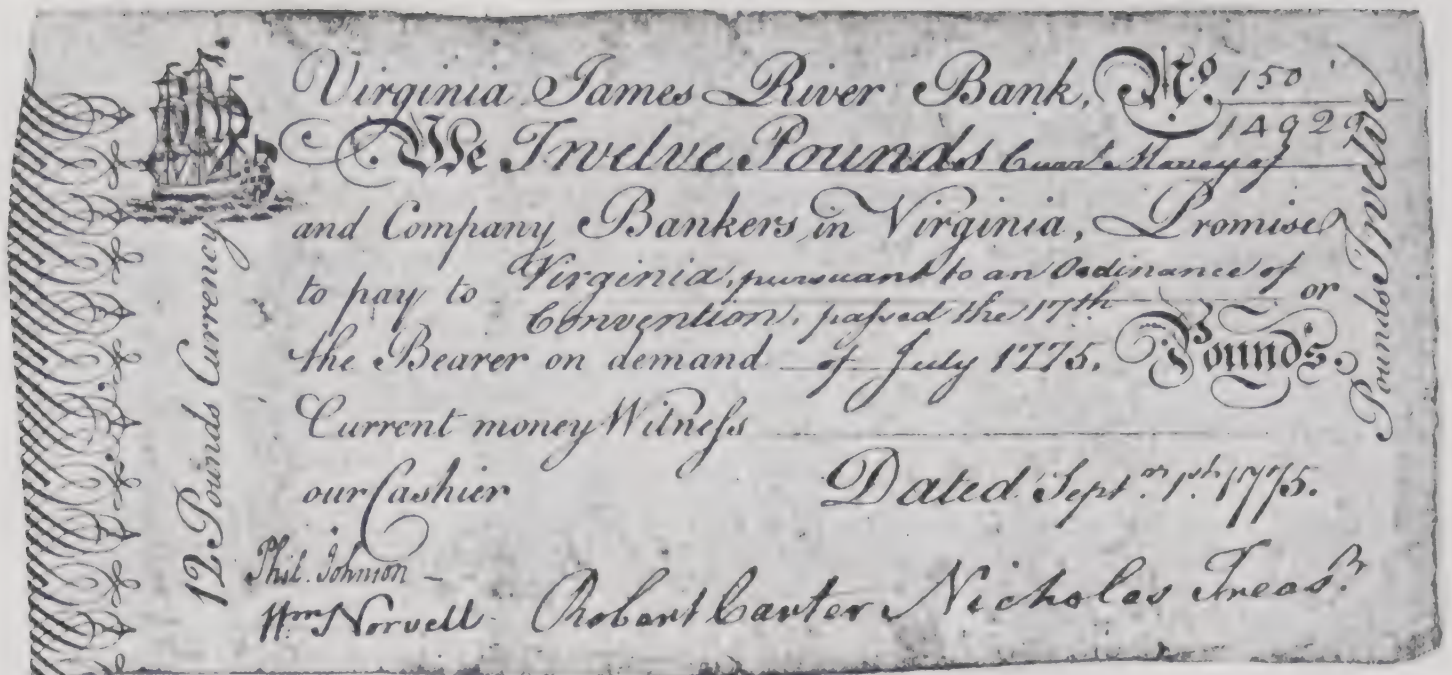 Virginia James River Bank, No. 150
14929
We Twelve Pounds Curr.t Money of
and Company Bankers in Virginia, Promise
to pay to Virginia, pursuant to an Ordinance of
Convention, paſsed the 17th or
the Bearer on demand of July 1775. Pounds.
Current money Witneſs
our Cashier Dated Sept.r 1st. 1775.
Phil. Johnson
Wm Norvell Robert Carter Nicholas Treas.r
12 Pounds Currency
Pounds Twelve